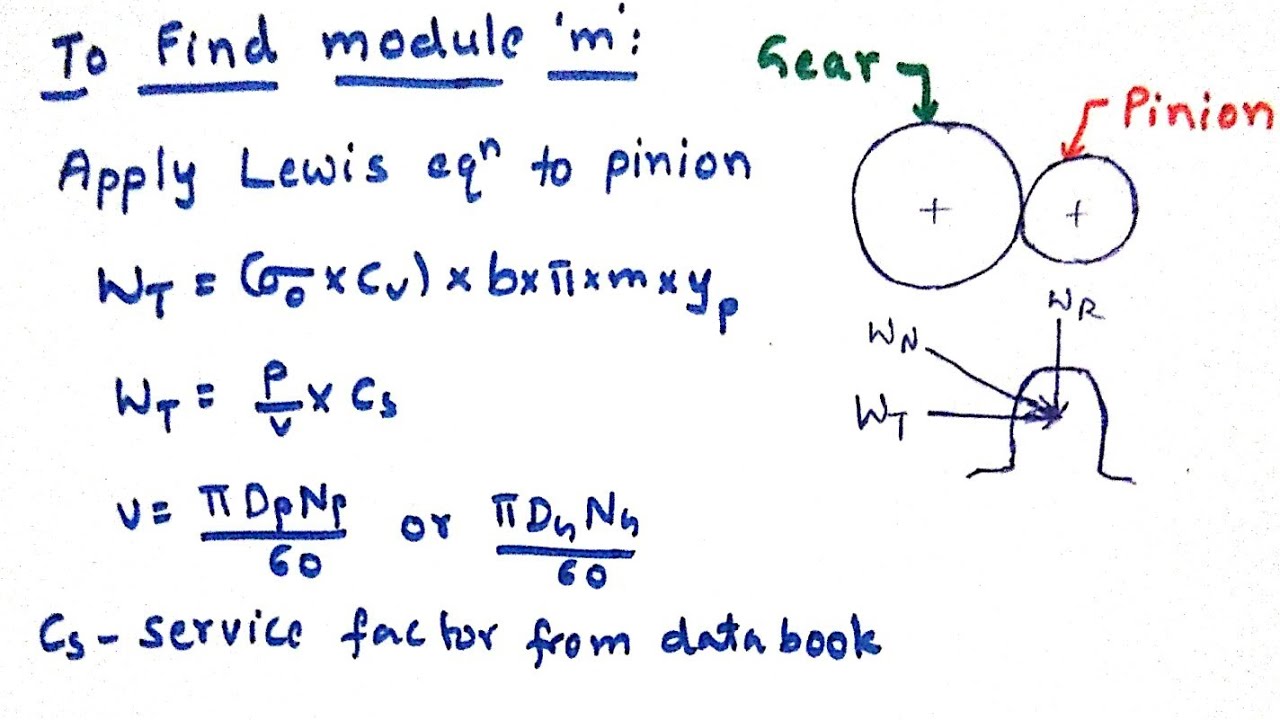 To Find module 'm':
Apply Lewis eqⁿ to pinion
W_T = (σ₀ × C_v) × b × π × m × y_p
W_T = P/v × C_s
v = πD_pN_p/60 or πD_GN_G/60
C_s - service factor from data book
Gear
Pinion
W_R
W_N
W_T